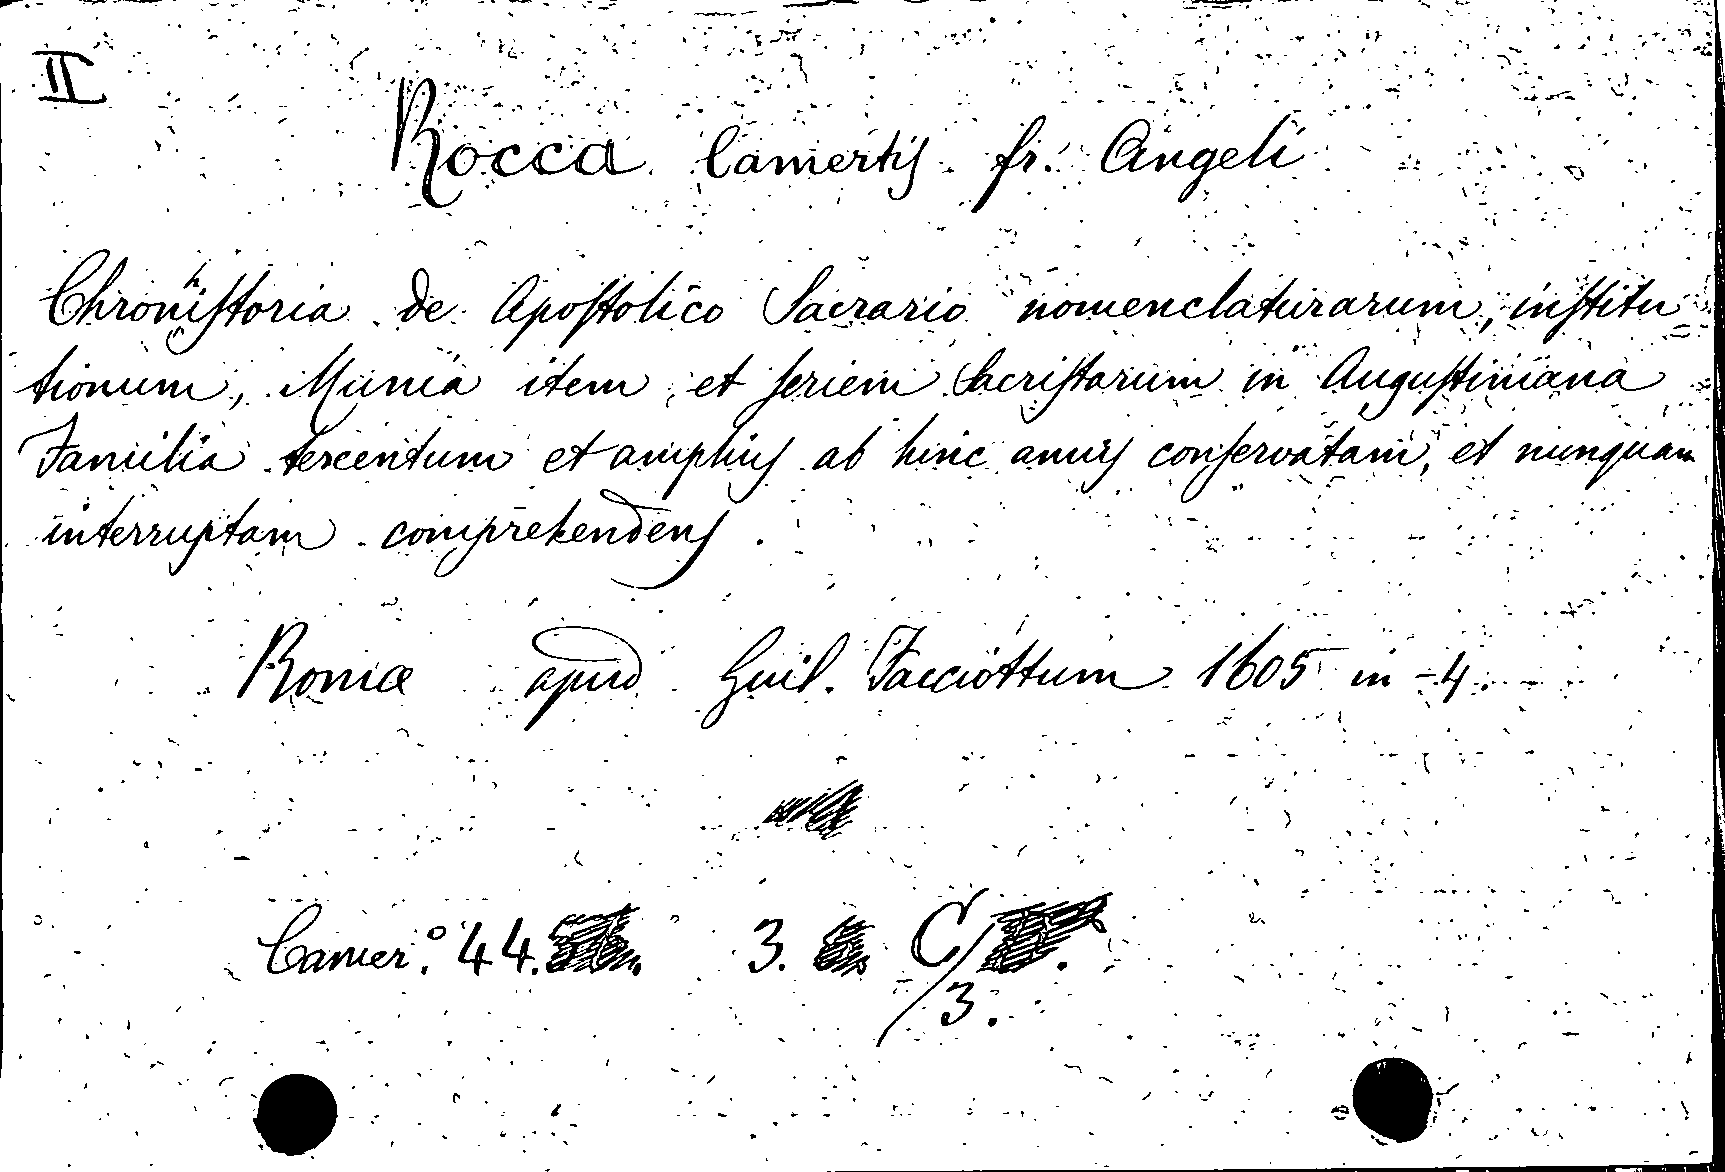 II
Rocca Camertis fr. Angeli
Chronhistoria de Apostolico Sacrario nomenclaturarum, institu
tionum, Munia item, et seriem Sacristarum in Augustiniana
Familia tercentum et amplius ab hinc annis conservatam, et nunquam
interruptam comprehendens.
Romæ apud Guil. Facciottum 1605 in-4.
Camer.° 44. 3. C/
3.